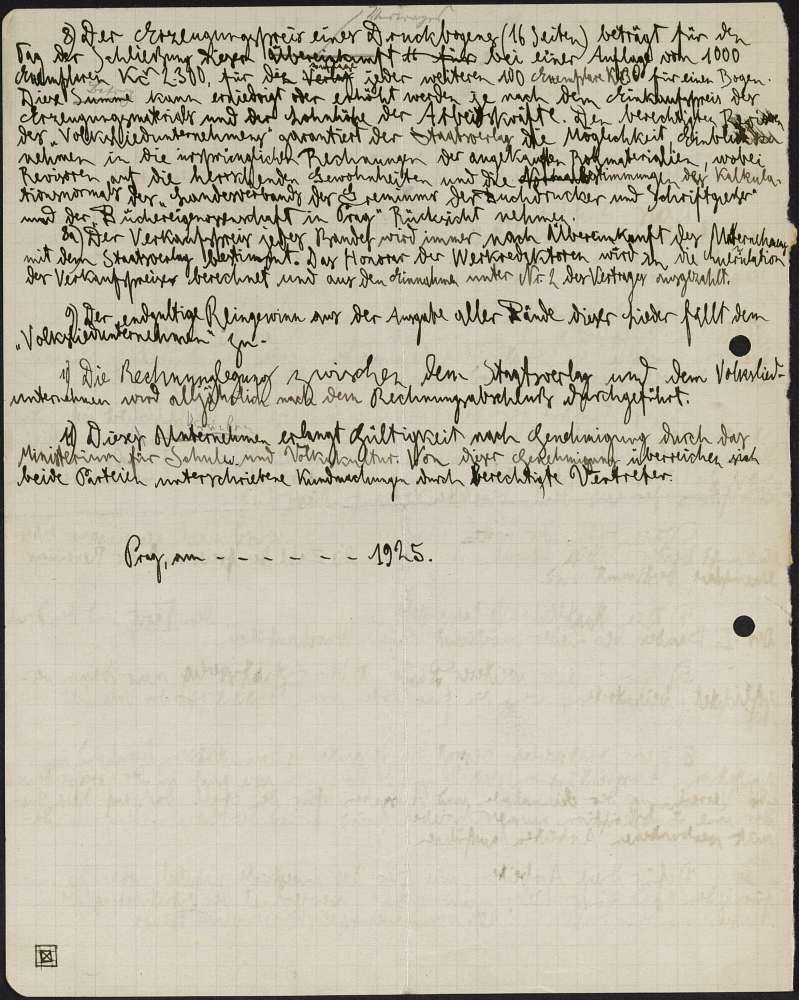 8) Der Erzeugungspreis eines Druckbogens (16 Seiten) beträgt für den
Tag der Schließung dieser Übereinkunft bei einer Auflage von 1000
Exemplaren Kč 2.300, für jeder weiteren 100 Exemplare Kč 130 für einen Bogen.
Diese Summe kann erniedrigt oder erhöht werden je nach dem Einkaufspreis des
Erzeugungsmaterials und der Lohnhöhe der Arbeitskräfte. Den berechtigten Revisoren
des „Volksliedunternehmens" garantiert der Staatsverlag die Möglichkeit, Einblick zu
nehmen in die ursprünglichen Rechnungen der angekauften Rohmaterialien, wobei
Revisoren auf die herrschenden Gewohnheiten und die Normalbestimmungen des Kalkula-
tionsnormals des „Landesverbands des Gremiums der Buchdrucker und Schriftgießer"
und der „Büchereigenossenschaft in Prag" Rücksicht nehmen.
8a) Der Verkaufspreis jedes Bandes wird immer nach Übereinkunft des Unternehmens
mit dem Staatsverlag bestimmt. Das Honorar der Werkredaktoren wird in die Kalkulation
des Verkaufspreises berechnet und aus den Einnahmen unter Nr. 2 des Vertrages ausgezahlt.
9) Der endgültige Reingewinn aus der Ausgabe aller Bände dieser Lieder fällt dem
„Volksliedunternehmen" zu.
Die Rechnungslegung zwischen dem Staatsverlag und dem Volkslied-
unternehmen wird alljährlich nach dem Rechnungsabschluß durchgeführt.
11) Dieses Unternehmen erlangt Gültigkeit nach Genehmigung durch das
Ministerium für Schulw. und Volkskultur. Von dieser Genehmigung überreichen sich
beide Parteien unterschriebene Kundmachungen durch berechtigte Vertreter.
Prag, am - - - - - - 1925.